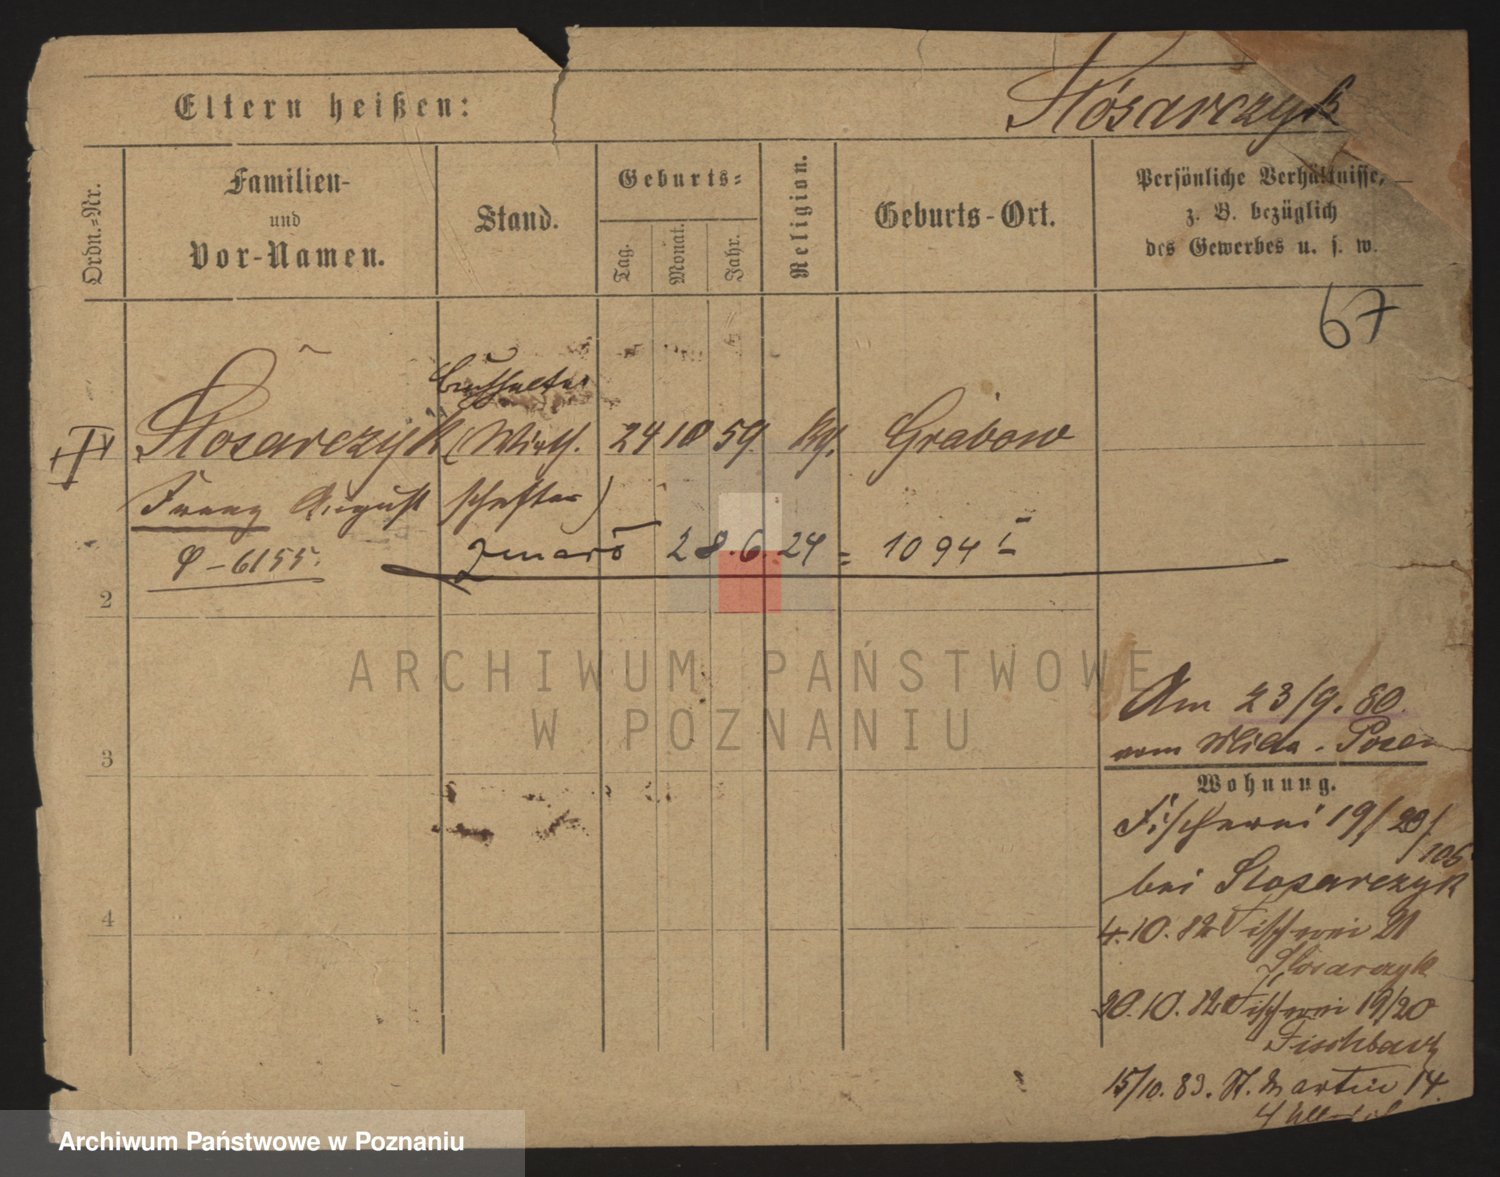 Eltern heißen:
Slósarczyk
Ordn.-Nr.
Familien-
und
Vor-Namen.
Stand.
Geburts-
Tag.
Monat.
Jahr.
Religion.
Geburts-Ort.
Persönliche Verhältnisse,
z. B. bezüglich
des Gewerbes u. s. w.
67
Slosarczyk (Wirth- 24 10 59 Grabow
Franz August schafter)
zmarł 28.6.24 = 1094 I
6155
2
ARCHIWUM PAŃSTWOWE
W POZNANIU
3
Am 23/9. 80.
vom Posen
Wohnung.
Fischerei 19/20/
105
bei Slosarczyk
4
4.10.82 Fischerei 21
Slosarczyk
20.10.82 Fischerei 19/20
Fischbach
15/10.83. St. Martin 14.
Archiwum Państwowe w Poznaniu